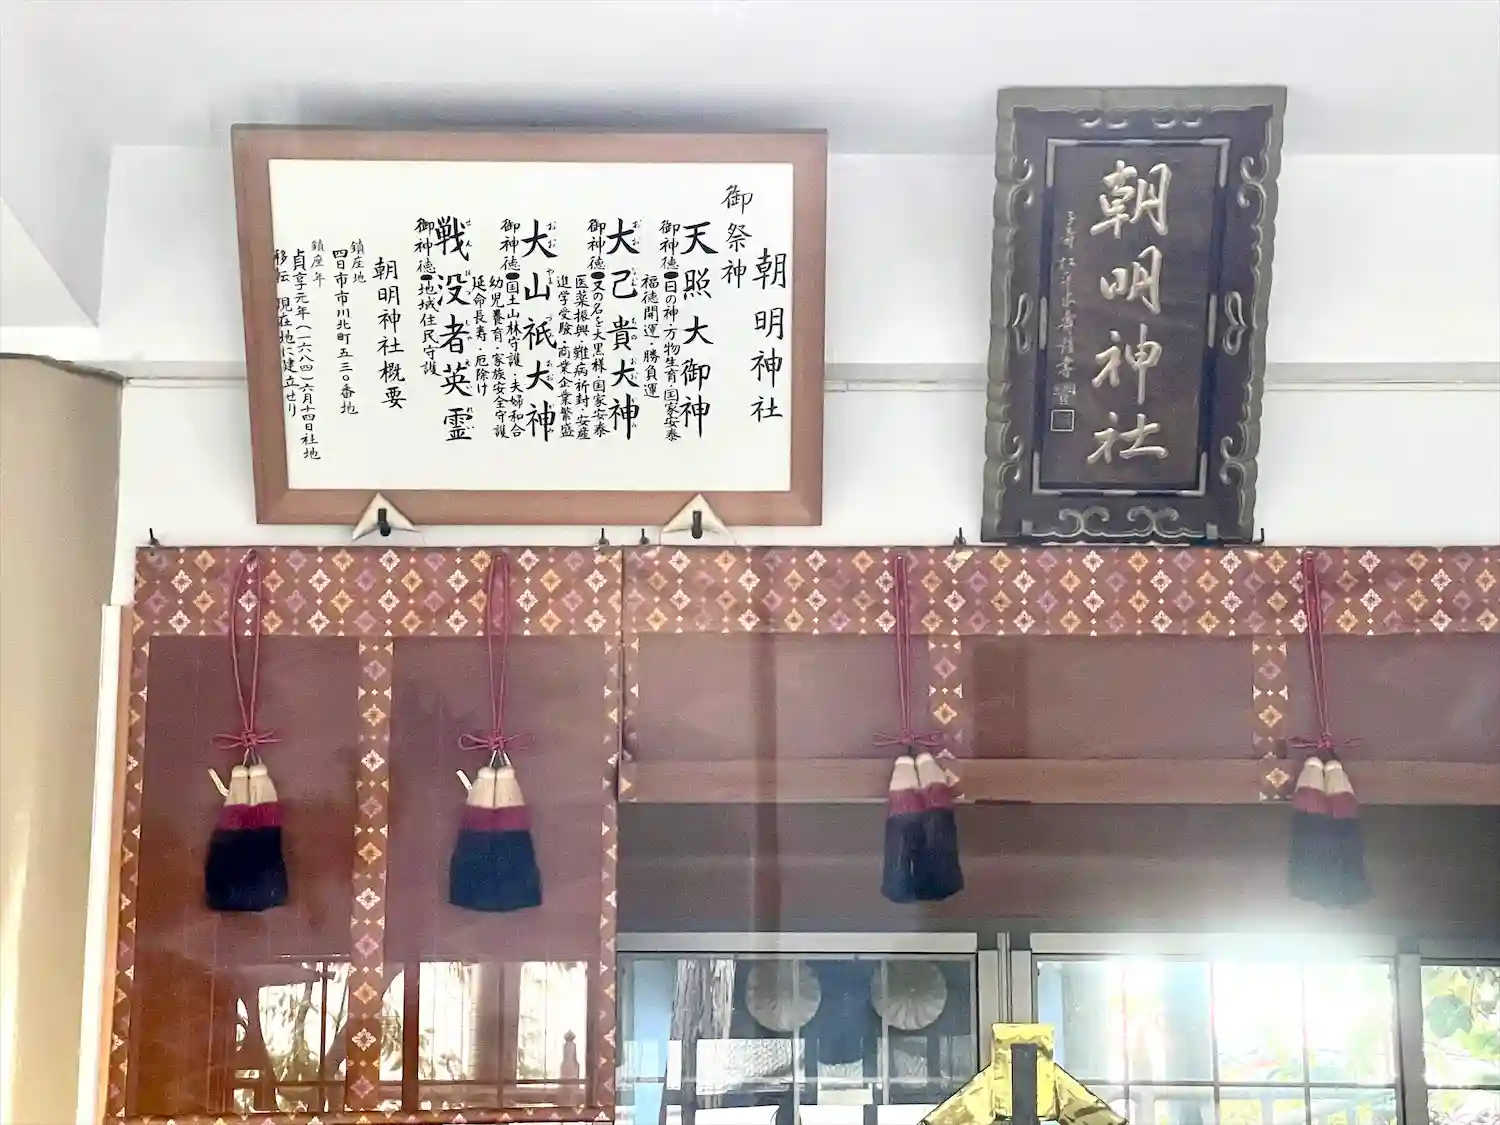 朝明神社
御祭神
天照大御神
御神徳●日の神・万物生育・国家安泰
福徳開運・勝負運
大己貴大神
御神徳●又の名を大黒様・国家安泰
医薬振興・難病祈封・安産
進学受験・商業企業繁盛
大山祇大神
御神徳●国土山林守護・夫婦和合
幼児養育・家族安全守護
延命長寿・厄除け
戦没者英霊
御神徳●地域住民守護
朝明神社概要
鎮座地
四日市市川北町五三〇番地
鎮座年
貞享元年(一六八四)六月十四日社地
移転 現在地に建立せり
朝明神社